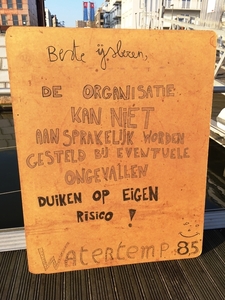 Beste ijsberen,
DE ORGANISATIE
KAN NIET
AANSPRAKELIJK WORDEN
GESTELD BIJ EVENTUELE
ONGEVALLEN
DUIKEN OP EIGEN
RISICO !
Watertemp. 8.5